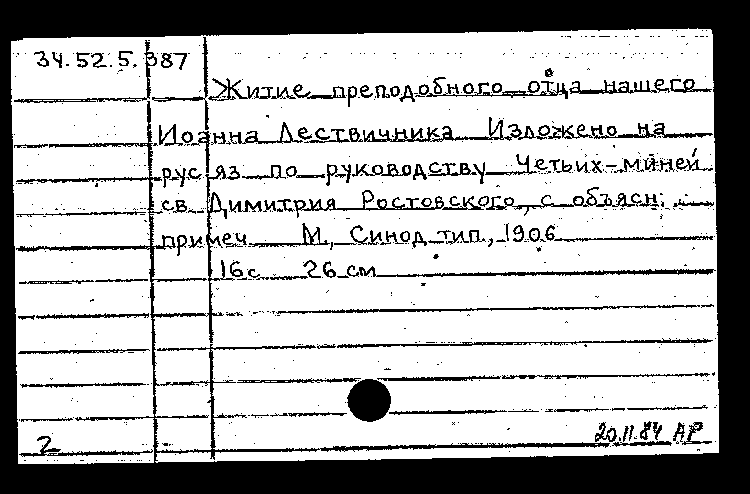 34.52.5.387
Житие преподобного отца нашего
Иоанна Лествичника Изложено на
рус яз по руководству Четьих-миней
св Димитрия Ростовского, с объясн.
примеч М., Синод. тип., 1906
16с 26 см
2
20.11.84 АР